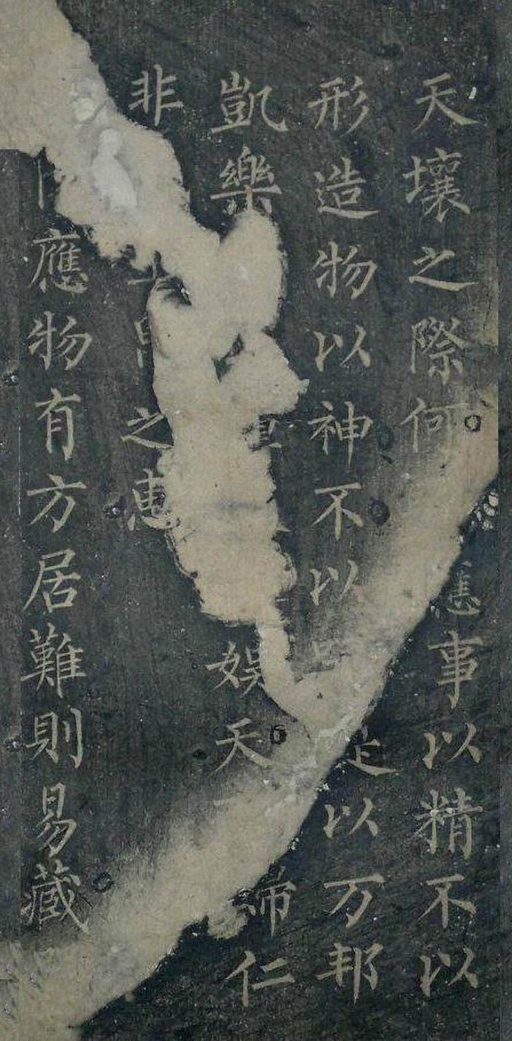 天壤之際何事以精不以
形造物以神不以以万邦
凱樂娛天仁
非之恵
應物有方居難則易藏